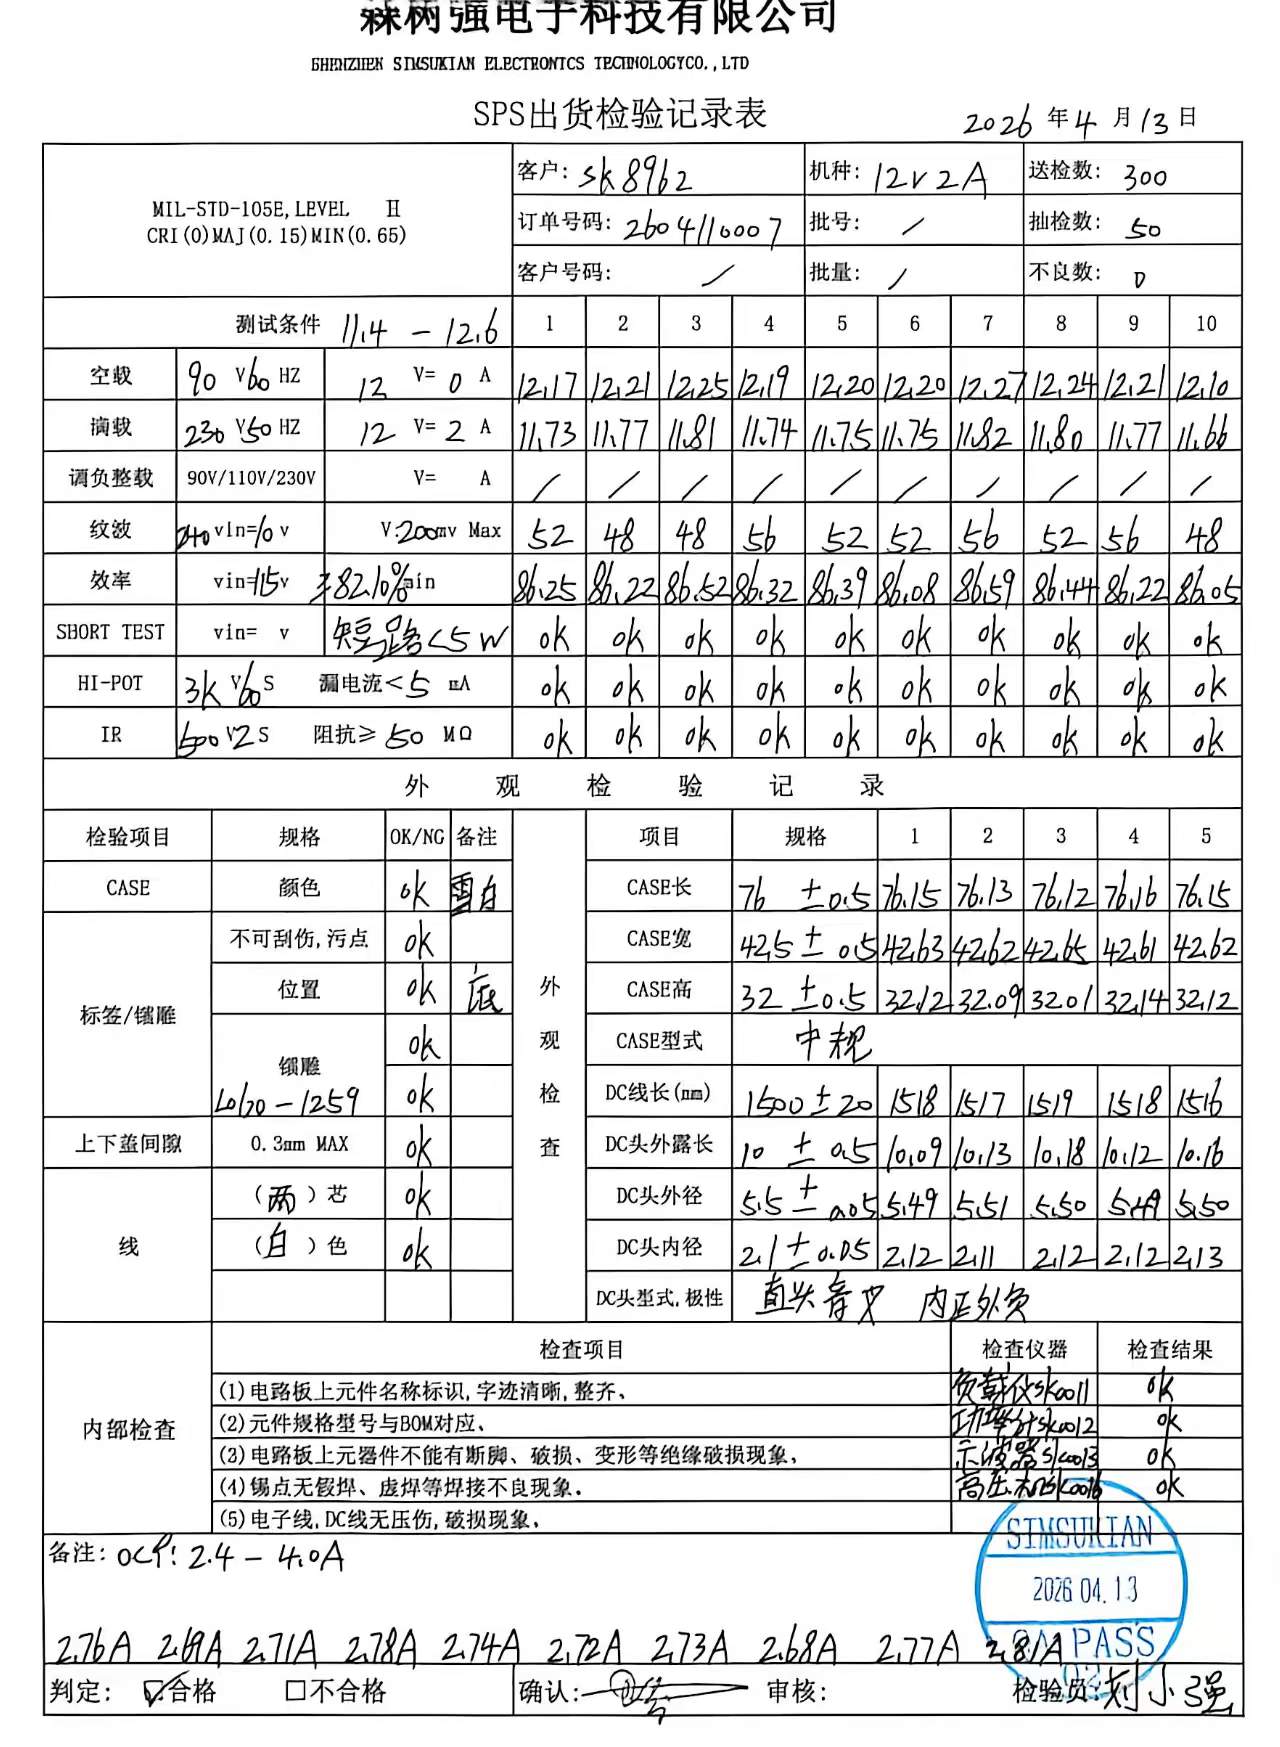 森树强电子科技有限公司
SHENZHEN SIMSUKIAN ELECTRONICS TECHNOLOGYCO.,LTD
SPS出货检验记录表
2026 年 4 月 13 日
MIL-STD-105E,LEVEL II
CRI(0)MAJ(0.15)MIN(0.65)
客户: SK8962 机种: 12V2A 送检数: 300
订单号码: 2604110007 批号: / 抽检数: 50
客户号码: / 批量: / 不良数: 0
测试条件 11.4 - 12.6 1 2 3 4 5 6 7 8 9 10
空载 90 V 60 HZ 12 V= 0 A 12.17 12.21 12.25 12.19 12.20 12.20 12.27 12.24 12.21 12.10
满载 230 V 50 HZ 12 V= 2 A 11.73 11.77 11.81 11.74 11.75 11.75 11.82 11.80 11.77 11.66
调负整载 90V/110V/230V V= A / / / / / / / / / /
纹波 vin= v V:200mv Max 52 48 48 56 52 52 56 52 56 48
效率 vin=115v ≥82.10%min 86.25 86.22 86.52 86.32 86.39 86.08 86.59 86.44 86.22 86.05
SHORT TEST vin= v 短路<5W ok ok ok ok ok ok ok ok ok ok
HI-POT 3K V 60 S 漏电流< 5 mA ok ok ok ok ok ok ok ok ok ok
IR 500 V 2 S 阻抗≥ 50 MΩ ok ok ok ok ok ok ok ok ok ok
外观检验记录
检验项目 规格 OK/NG 备注 外观检查 项目 规格 1 2 3 4 5
CASE 颜色 ok 雪白 CASE长 76 ±0.5 76.15 76.13 76.12 76.16 76.15
标签/镭雕 不可刮伤,污点 ok CASE宽 42.5 ± 0.5 42.63 42.62 42.65 42.61 42.62
位置 ok 底 CASE高 32 ±0.5 32.12 32.09 32.01 32.14 32.12
镭雕 ok CASE型式 中规
-1259 ok DC线长(mm) 1500 ± 20 1518 1517 1519 1518 1516
上下盖间隙 0.3mm MAX ok DC头外露长 10 ± 0.5 10.09 10.13 10.18 10.12 10.16
线 (两)芯 ok DC头外径 5.5 ± 0.05 5.49 5.51 5.50 5.49 5.50
(白)色 ok DC头内径 2.1 ± 0.05 2.12 2.11 2.12 2.12 2.13
DC头型式,极性 直头音叉 内正外负
内部检查 检查项目 检查仪器 检查结果
(1)电路板上元件名称标识,字迹清晰,整齐、 负载仪sk0011 ok
(2)元件规格型号与BOM对应、 功率计sk0012 ok
(3)电路板上元器件不能有断脚、破损、变形等绝缘破损现象、 示波器sk0013 ok
(4)锡点无假焊、虚焊等焊接不良现象。 高压机sk0016 ok
(5)电子线,DC线无压伤,破损现象、
备注: OCP: 2.4 - 4.0A
SIMSUKIAN
2026.04.13
QA PASS
02
2.76A 2.69A 2.71A 2.78A 2.74A 2.72A 2.73A 2.68A 2.77A 2.81A
判定: ☑合格 □不合格 确认: 审核: 检验员: 刘小强